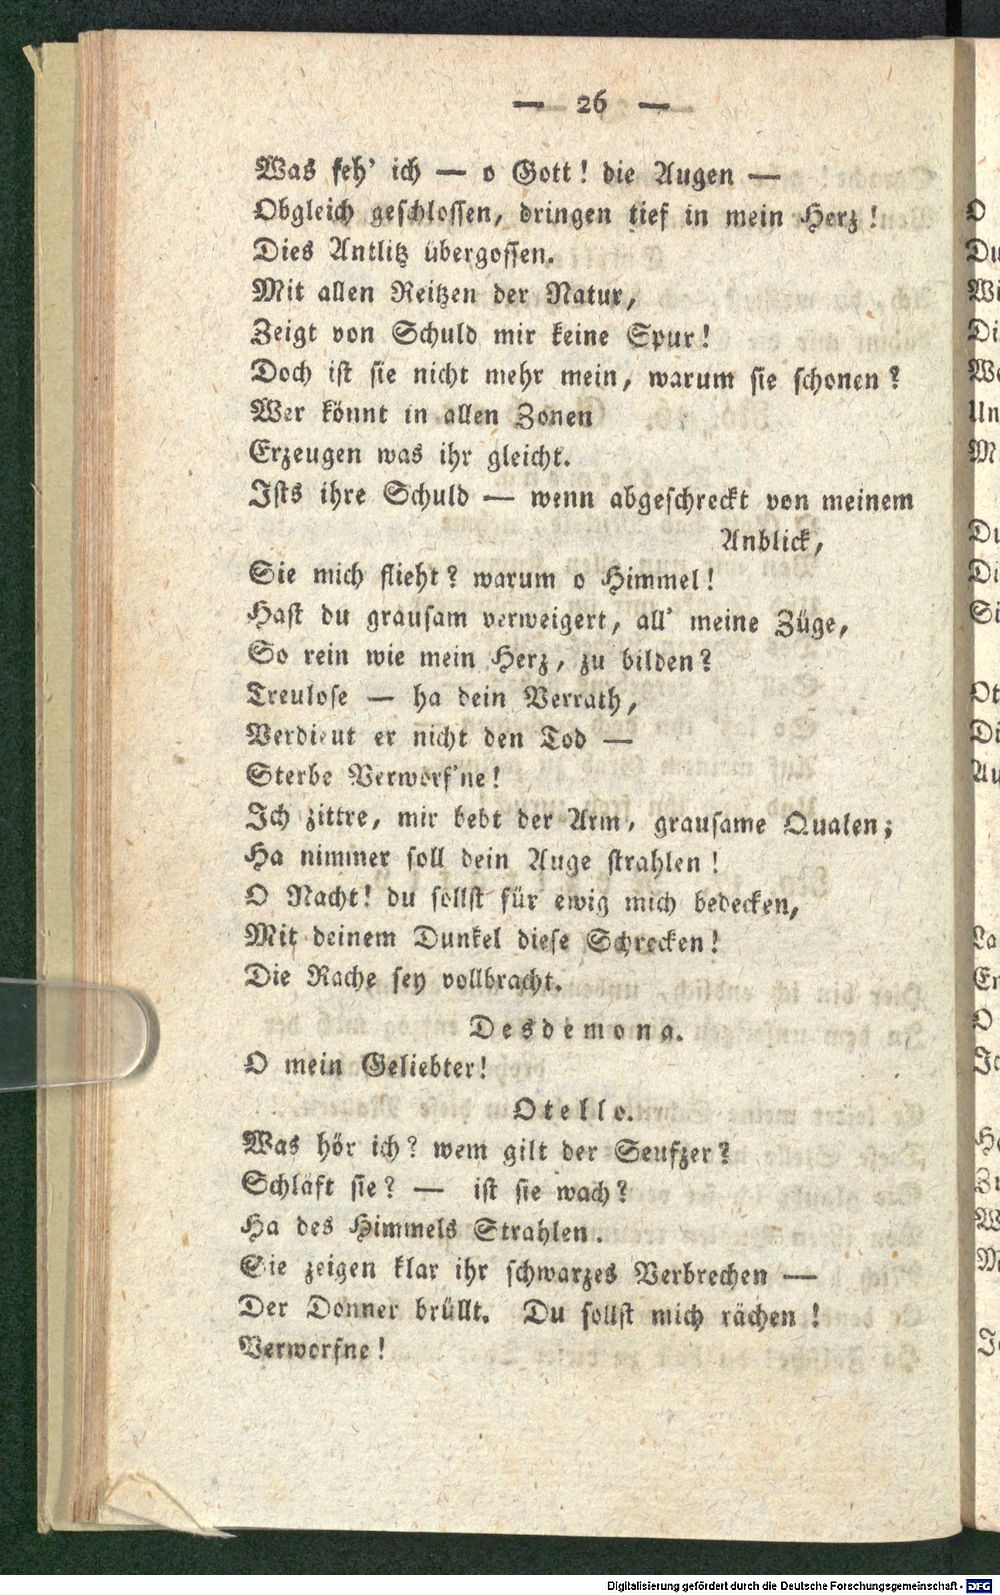 — 26 —
Was seh' ich — o Gott! die Augen —
Obgleich geschlossen, dringen tief in mein Herz!
Dies Antlitz übergossen.
Mit allen Reitzen der Natur,
Zeigt von Schuld mir keine Spur!
Doch ist sie nicht mehr mein, warum sie schonen?
Wer könnt in allen Zonen
Erzeugen was ihr gleicht.
Ists ihre Schuld — wenn abgeschreckt von meinem
Anblick,
Sie mich flieht? warum o Himmel!
Hast du grausam verweigert, all' meine Züge,
So rein wie mein Herz, zu bilden?
Treulose — ha dein Verrath,
Verdient er nicht den Tod —
Sterbe Verworf'ne!
Ich zittre, mir bebt der Arm, grausame Qualen;
Ha nimmer soll dein Auge strahlen!
O Nacht! du sollst für ewig mich bedecken,
Mit deinem Dunkel diese Schrecken!
Die Rache sey vollbracht.
Desdemona.
O mein Geliebter!
Otello.
Was hör ich? wem gilt der Seufzer?
Schläft sie? — ist sie wach?
Ha des Himmels Strahlen.
Sie zeigen klar ihr schwarzes Verbrechen —
Der Donner brüllt. Du sollst mich rächen!
Verworfne!
Digitalisierung gefördert durch die Deutsche Forschungsgemeinschaft - DFG